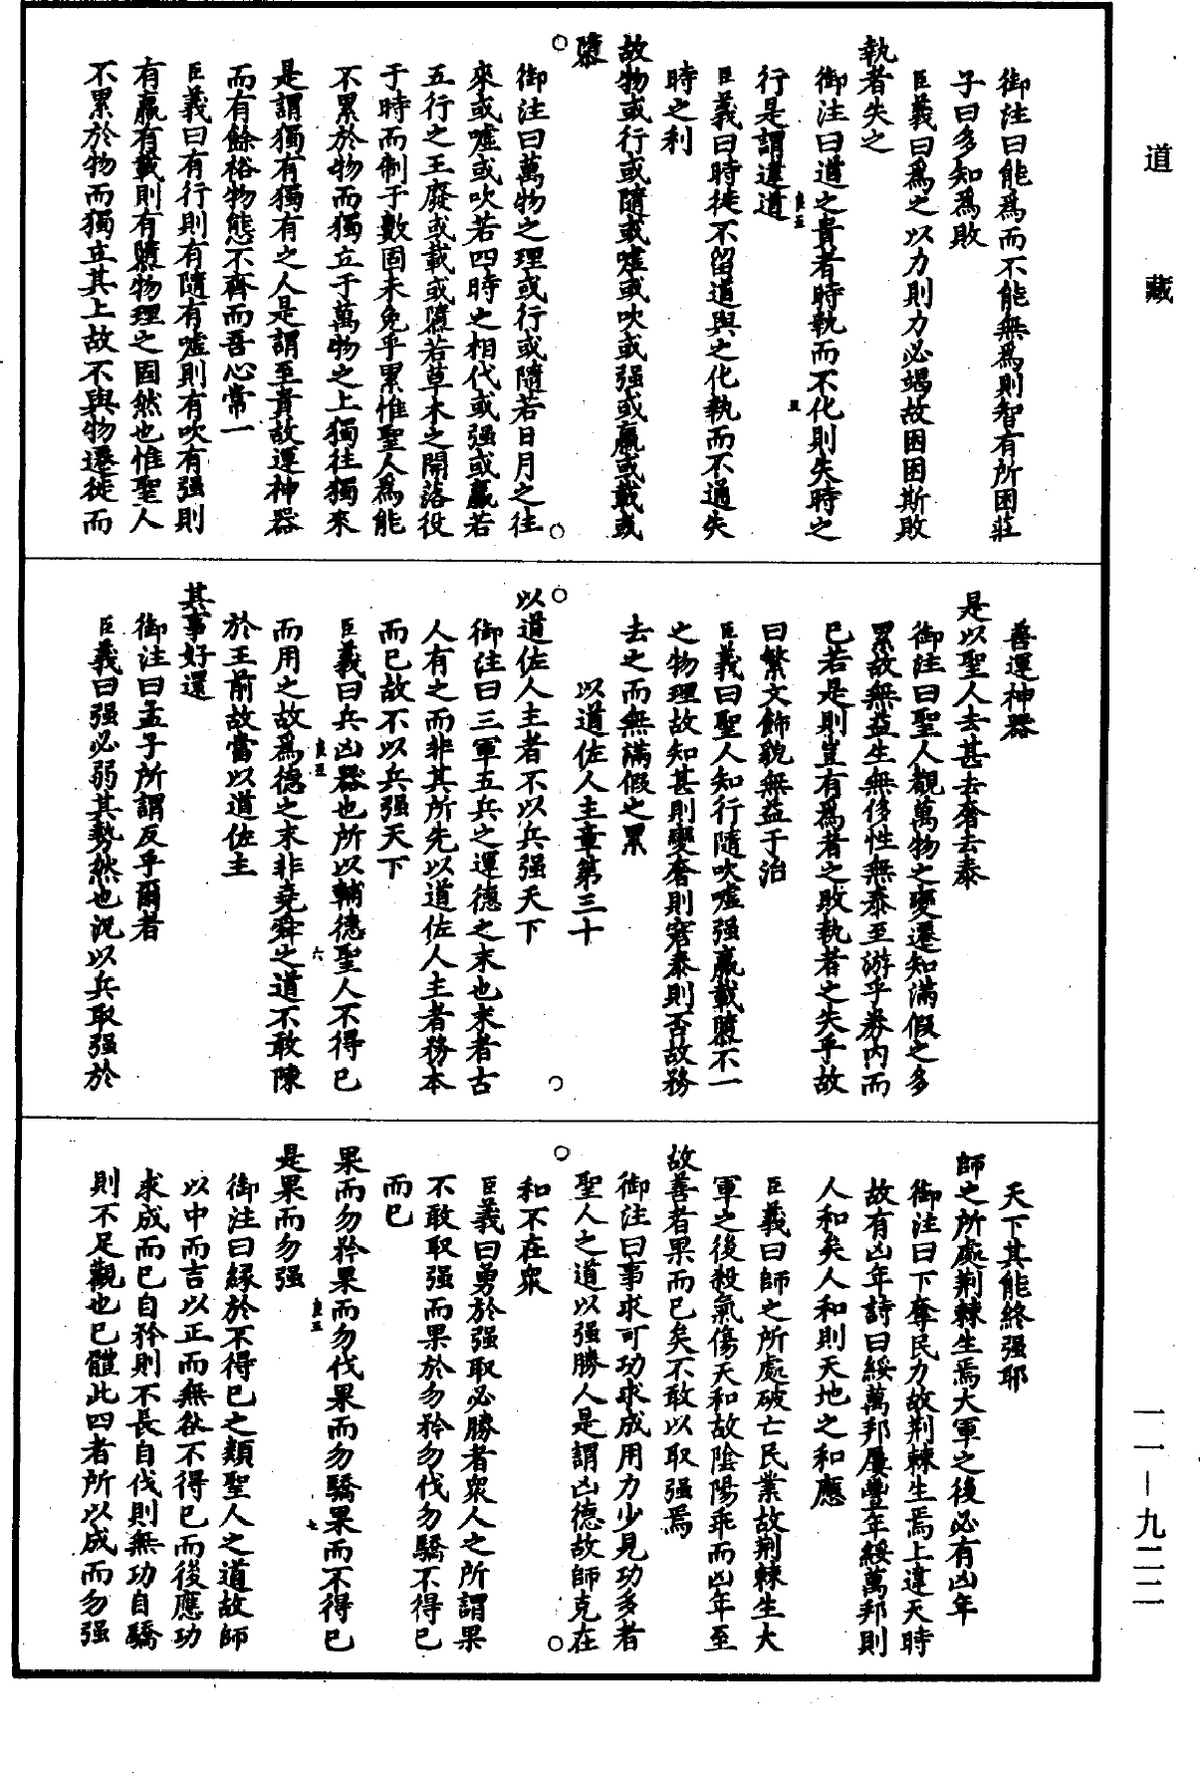 道藏
御注曰能爲而不能無爲則智有所困莊
子曰多知爲敗
臣義曰爲之以力則力必竭故困困斯敗
執者失之
御注曰道之貴者時執而不化則失時之
行是謂違道
臣義曰時徙不留道與之化執而不通失
時之利
故物或行或隨或噓或吹或强或羸或載或
隳
御注曰萬物之理或行或隨若日月之往
來或噓或吹若四時之相代或强或羸若
五行之王廢或載或隳若草木之開落役
于時而制于數固未免乎累惟聖人爲能
不累於物而獨立于萬物之上獨往獨來
是謂獨有獨有之人是謂至貴故運神器
而有餘裕物態不齊而吾心常一
臣義曰有行則有隨有噓則有吹有强則
有羸有載則有隳物理之固然也惟聖人
不累於物而獨立其上故不與物遷徙而
善運神器
是以聖人去甚去奢去泰
御注曰聖人觀萬物之變遷知滿假之多
累故無益生無侈性無泰至游乎券內而
已若是則豈有爲者之敗執者之失乎故
曰繁文飾貌無益于治
臣義曰聖人知行隨吹噓强羸載隳不一
之物理故知甚則變奢則窮泰則否故務
去之而無滿假之累
以道佐人主章第三十
以道佐人主者不以兵强天下
御注曰三軍五兵之運德之末也末者古
人有之而非其所先以道佐人主者務本
而已故不以兵强天下
臣義曰兵凶器也所以輔德聖人不得已
而用之故爲德之末非堯舜之道不敢陳
於王前故當以道佐主
其事好還
御注曰孟子所謂反乎爾者
臣義曰强必弱其勢然也況以兵取强於
天下其能終强耶
師之所處荆棘生焉大軍之後必有凶年
御注曰下奪民力故荆棘生焉上違天時
故有凶年詩曰綏萬邦屢豐年綏萬邦則
人和矣人和則天地之和應
臣義曰師之所處破亡民業故荆棘生大
軍之後殺氣傷天和故陰陽乖而凶年至
故善者果而已矣不敢以取强焉
御注曰事求可功求成用力少見功多者
聖人之道以强勝人是謂凶德故師克在
和不在衆
臣義曰勇於强取必勝者衆人之所謂果
不敢取强而果於勿矜勿伐勿驕不得已
而已
果而勿矜果而勿伐果而勿驕果而不得已
是果而勿强
御注曰緣於不得已之類聖人之道故師
以中而吉以正而無咎不得已而後應功
求成而已自矜則不長自伐則無功自驕
則不足觀也已體此四者所以成而勿强
一一－九二二